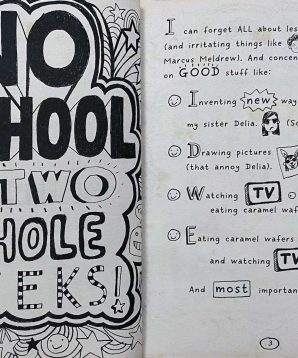 NO
CHOOL
TWO
HOLE
EKS!
I can forget ALL about les
(and irritating things like
Marcus Meldrew). And concen
on GOOD stuff like:
Inventing new way
my sister Delia. (So
Drawing pictures
(that annoy Delia).
Watching TV
eating caramel wafe
Eating caramel wafers
and watching TV
And most importan
3